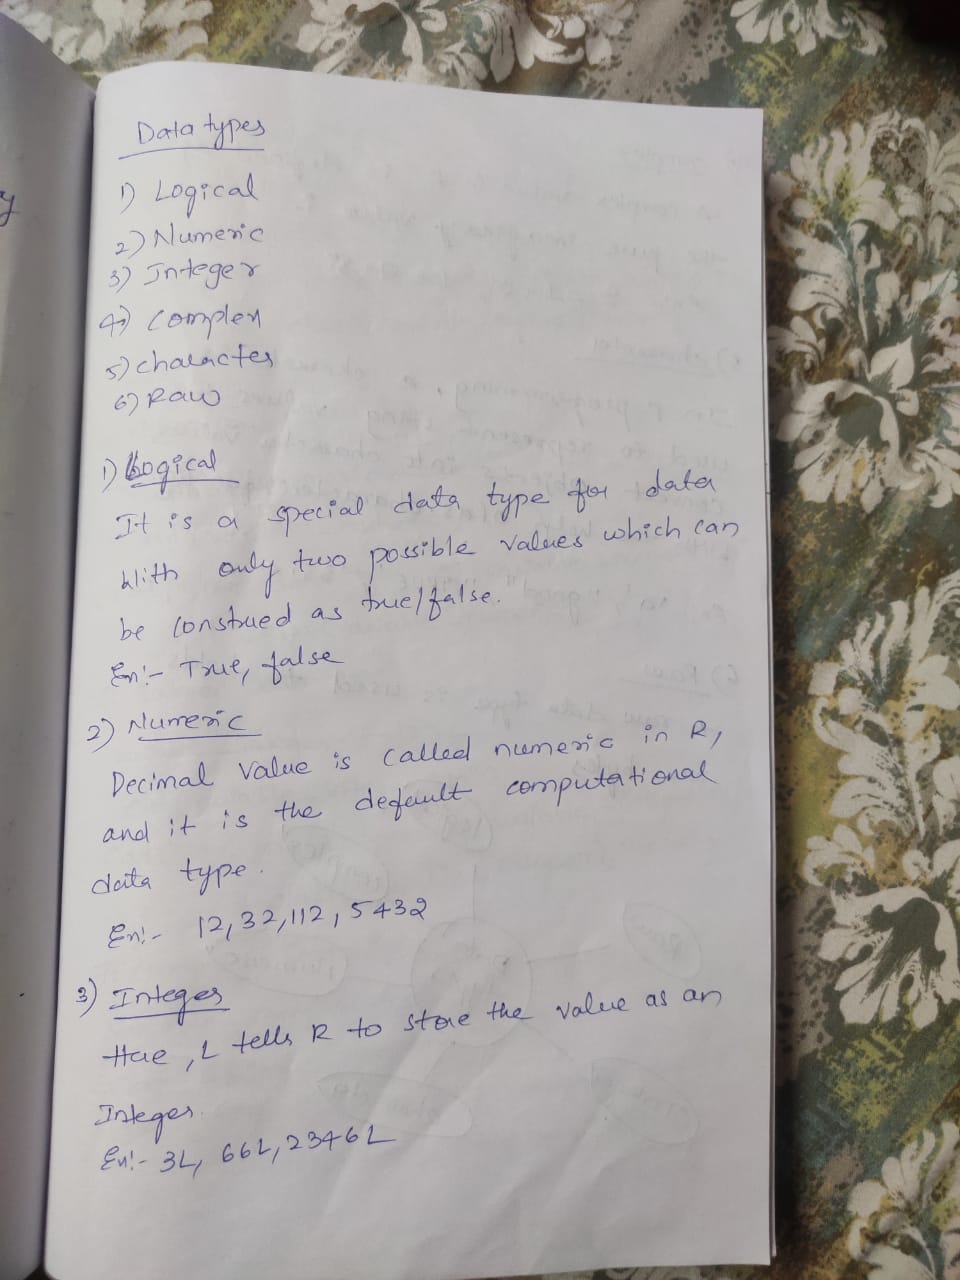 Data types
1) Logical
2) Numeric
3) Integer
4) Complex
5) character
6) Raw
1) Logical
It is a special data type for data
With only two possible values which can
be construed as true/false.
Ex:- True, false
2) Numeric
Decimal Value is called numeric in R,
and it is the default computational
data type.
Ex:- 12,32,112,5432
3) Integer
Here, L tells R to store the value as an
Integer.
Ex:- 3L, 66L, 2346L